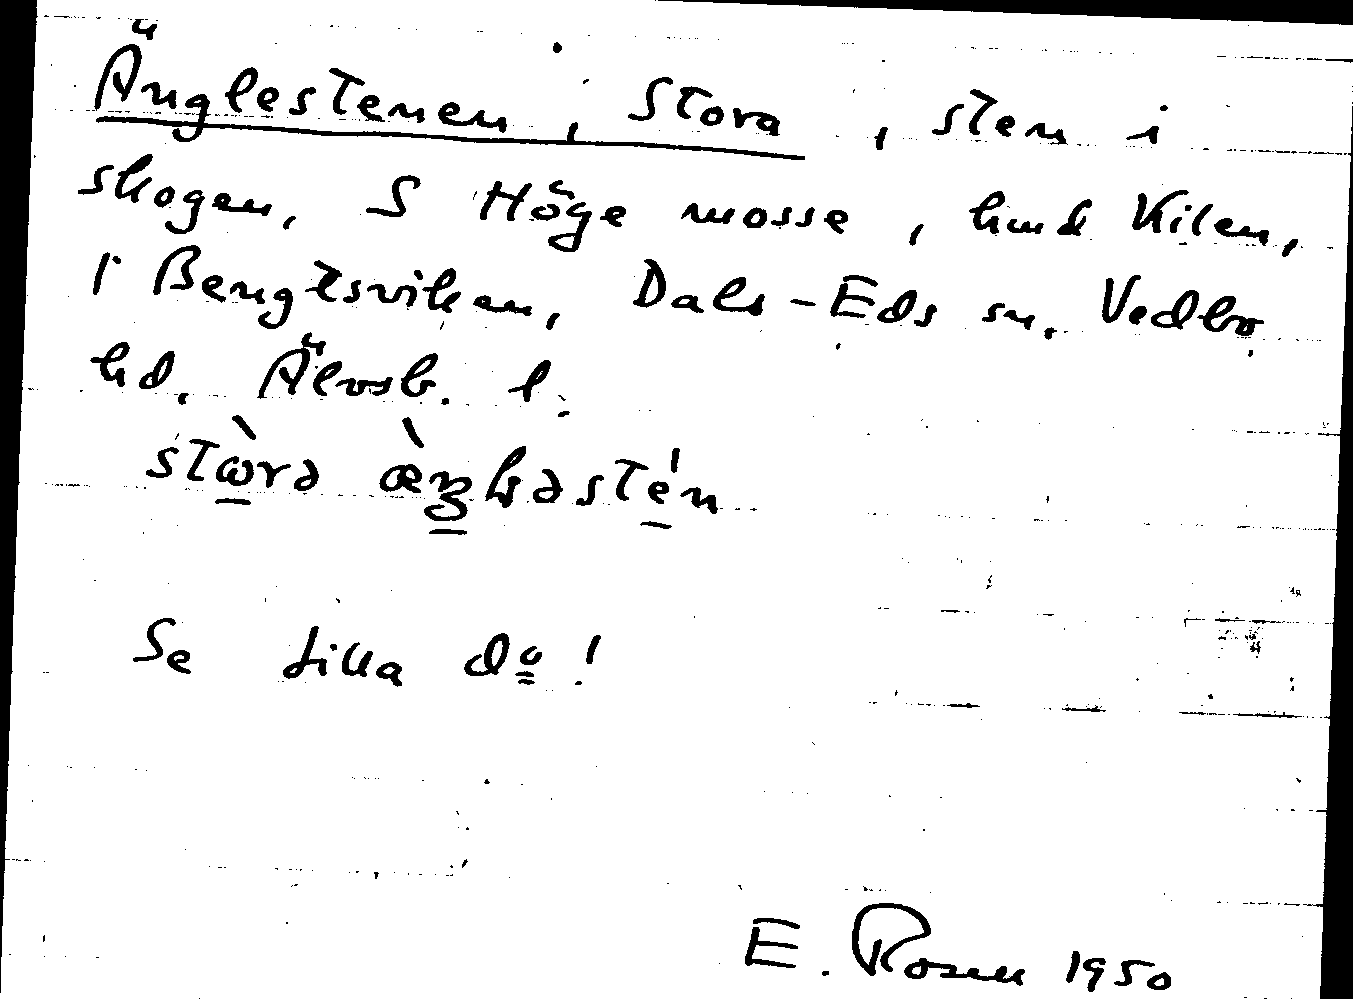 Änglestenen, Stora, sten i
skogen, S Höge mosse, hmd Kilen,
i Bengtsviken, Dals-Eds sn. Vedbo
hd. Älvsb. l.
Se Lilla do!
E. Rosen 1950